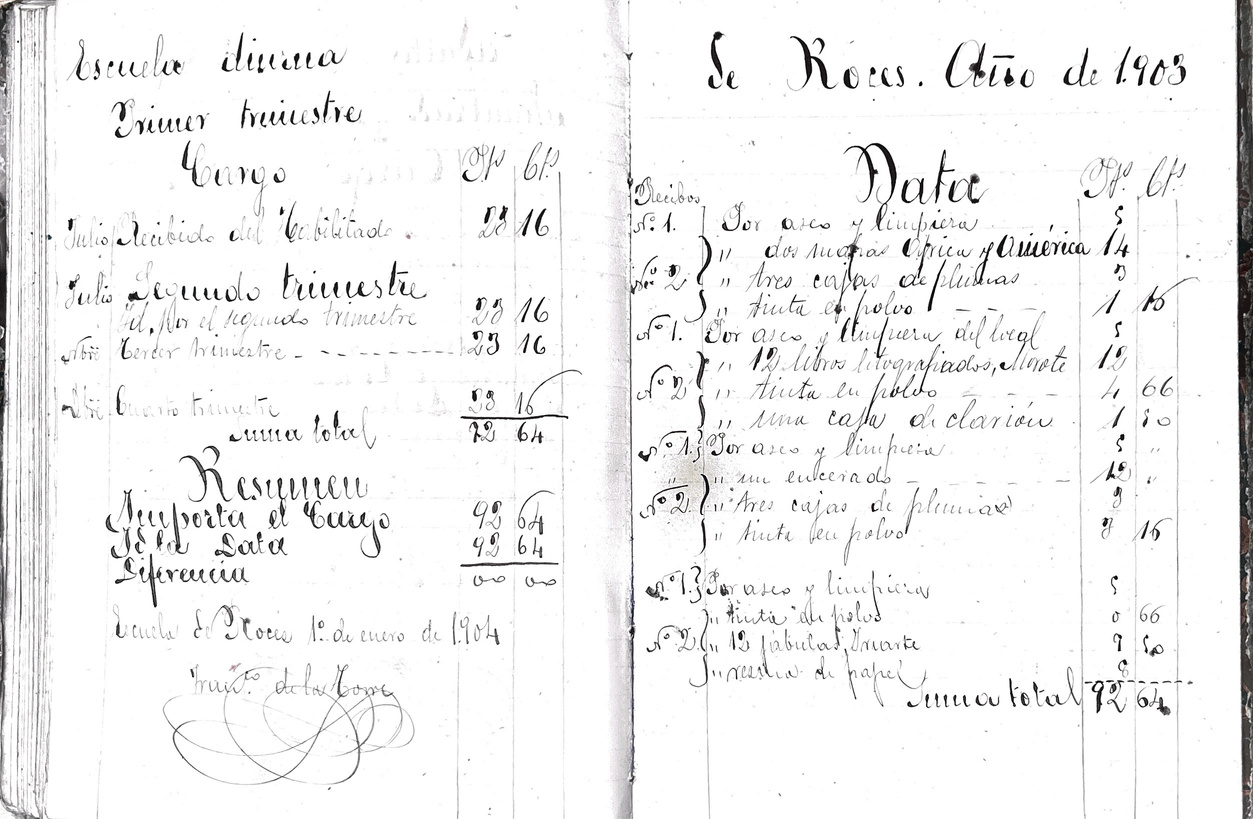 Escuela diurna
Primer trimestre
Cargo Pts Cts
Julio Recibido del Habilitado 23 16
Julio Segundo trimestre
Id. por el segundo trimestre 23 16
Nbre Tercer trimestre 23 16
Dbre Cuarto trimestre 23 16
Suma total 92 64
Resumen
Importa el Cargo 92 64
Id la Data 92 64
Diferencia 00 00
Escuela de Roces 1º de enero de 1904
Franco. de la Torre
de Roces. Año de 1.903
Data Pts. Cts
Recibos
Nº 1. Por aseo y limpieza 5
„ dos mapas África y América 14
Nº 2 „ tres cajas de plumas 3
„ tinta en polvo 1 16
Nº 1. Por aseo y limpieza del local 5
„ 12 libros litografiados, Morote 12
Nº 2 „ tinta en polvo 4 66
„ una caja de clarión 1 50
Nº 1. Por aseo y limpieza 5 „
„ „ un encerado 12 „
Nº 2. „ tres cajas de plumas 3
„ tinta en polvo 3 16
Nº 1. Por aseo y limpieza 5
„ tinta en polvo 0 66
Nº 2. „ 12 fábulas, Iriarte 9 50
„ resma de papel 8
Suma total 92 64